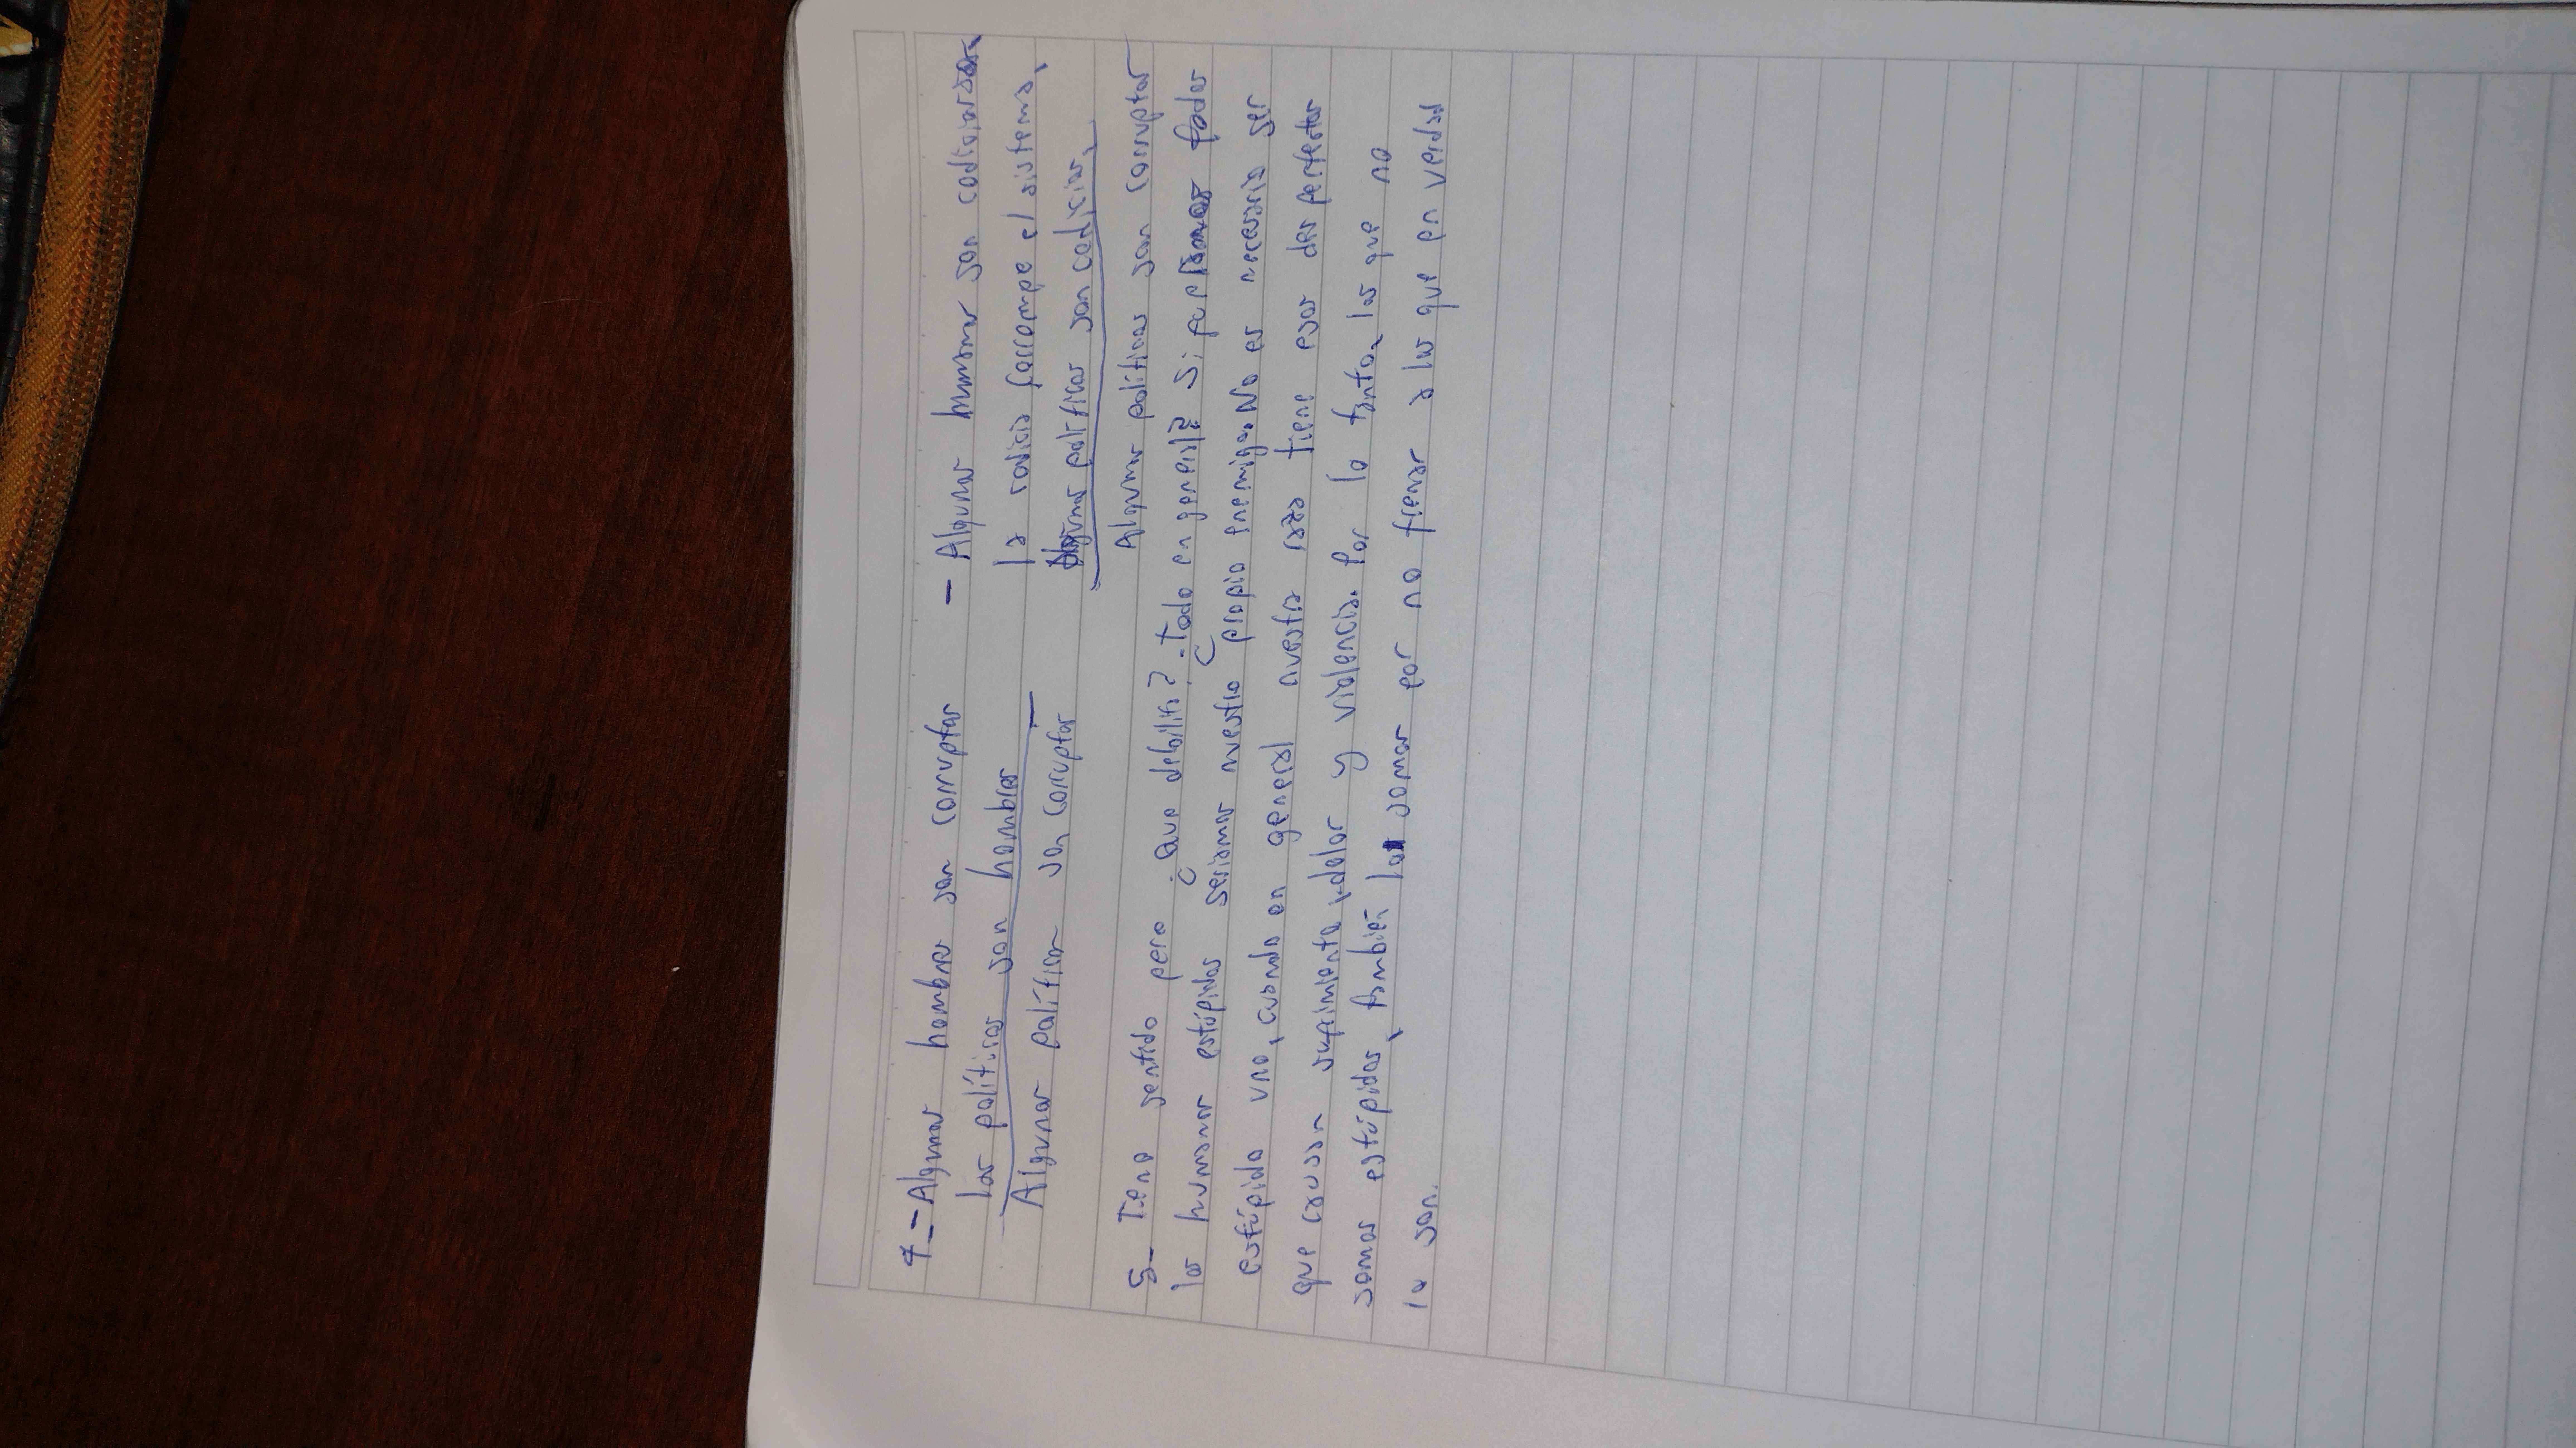 4_ - Algunos hombres son corruptos
Los políticos son hombres
Algunos políticos son corruptos
- Algunos humanos son codiciosos
la codicia corrompe el sistema,
Algunos políticos son codicios,
Algunos políticos son corruptos
5_ Tiene sentido pero ¿Que debilita? - todo en general? Si fue todos
los humanos estúpidos seriamos nuestro propio enemigo. No es necesario ser
estúpido uno, cuando en general nuestra raza tiene esos des perfectos
que causan sufrimiento, dolor y violencia. Por lo tanto, los que no
somos estúpidos, también lo somos por no frenar a los que en verdad
lo son.